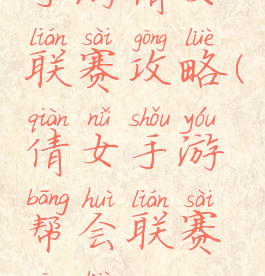 lián sài gōng lüè
联赛攻略(
qiàn nǚ shǒu yóu
倩女手游
bāng huì lián sài
帮会联赛